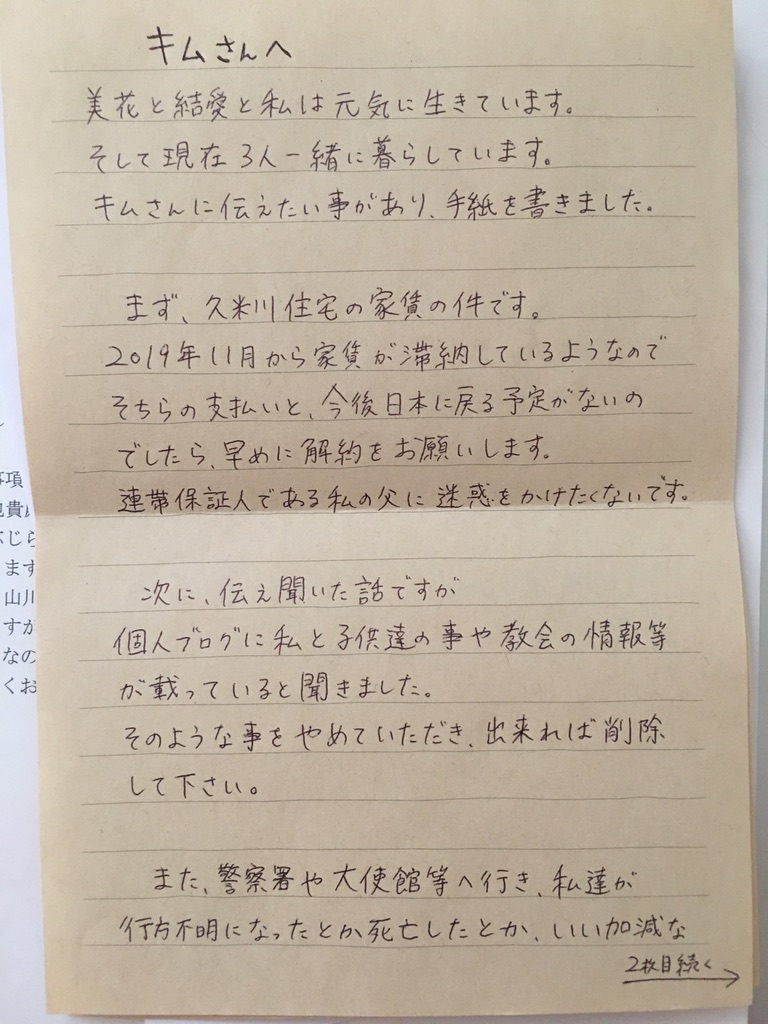 キムさんへ
美花と結愛と私は元気に生きています。
そして現在3人一緒に暮らしています。
キムさんに伝えたい事があり、手紙を書きました。
まず、久米川住宅の家賃の件です。
2019年11月から家賃が滞納しているようなので
そちらの支払いと、今後日本に戻る予定がないの
でしたら、早めに解約をお願いします。
連帯保証人である私の父に迷惑をかけたくないです。
次に、伝え聞いた話ですが
個人ブログに私と子供達の事や教会の情報等
が載っていると聞きました。
そのような事をやめていただき、出来れば削除
して下さい。
また、警察署や大使館等へ行き、私達が
行方不明になったとか死亡したとか、いい加減な
2枚目続く
事項
じら
ます
山川
すが
なの
くお